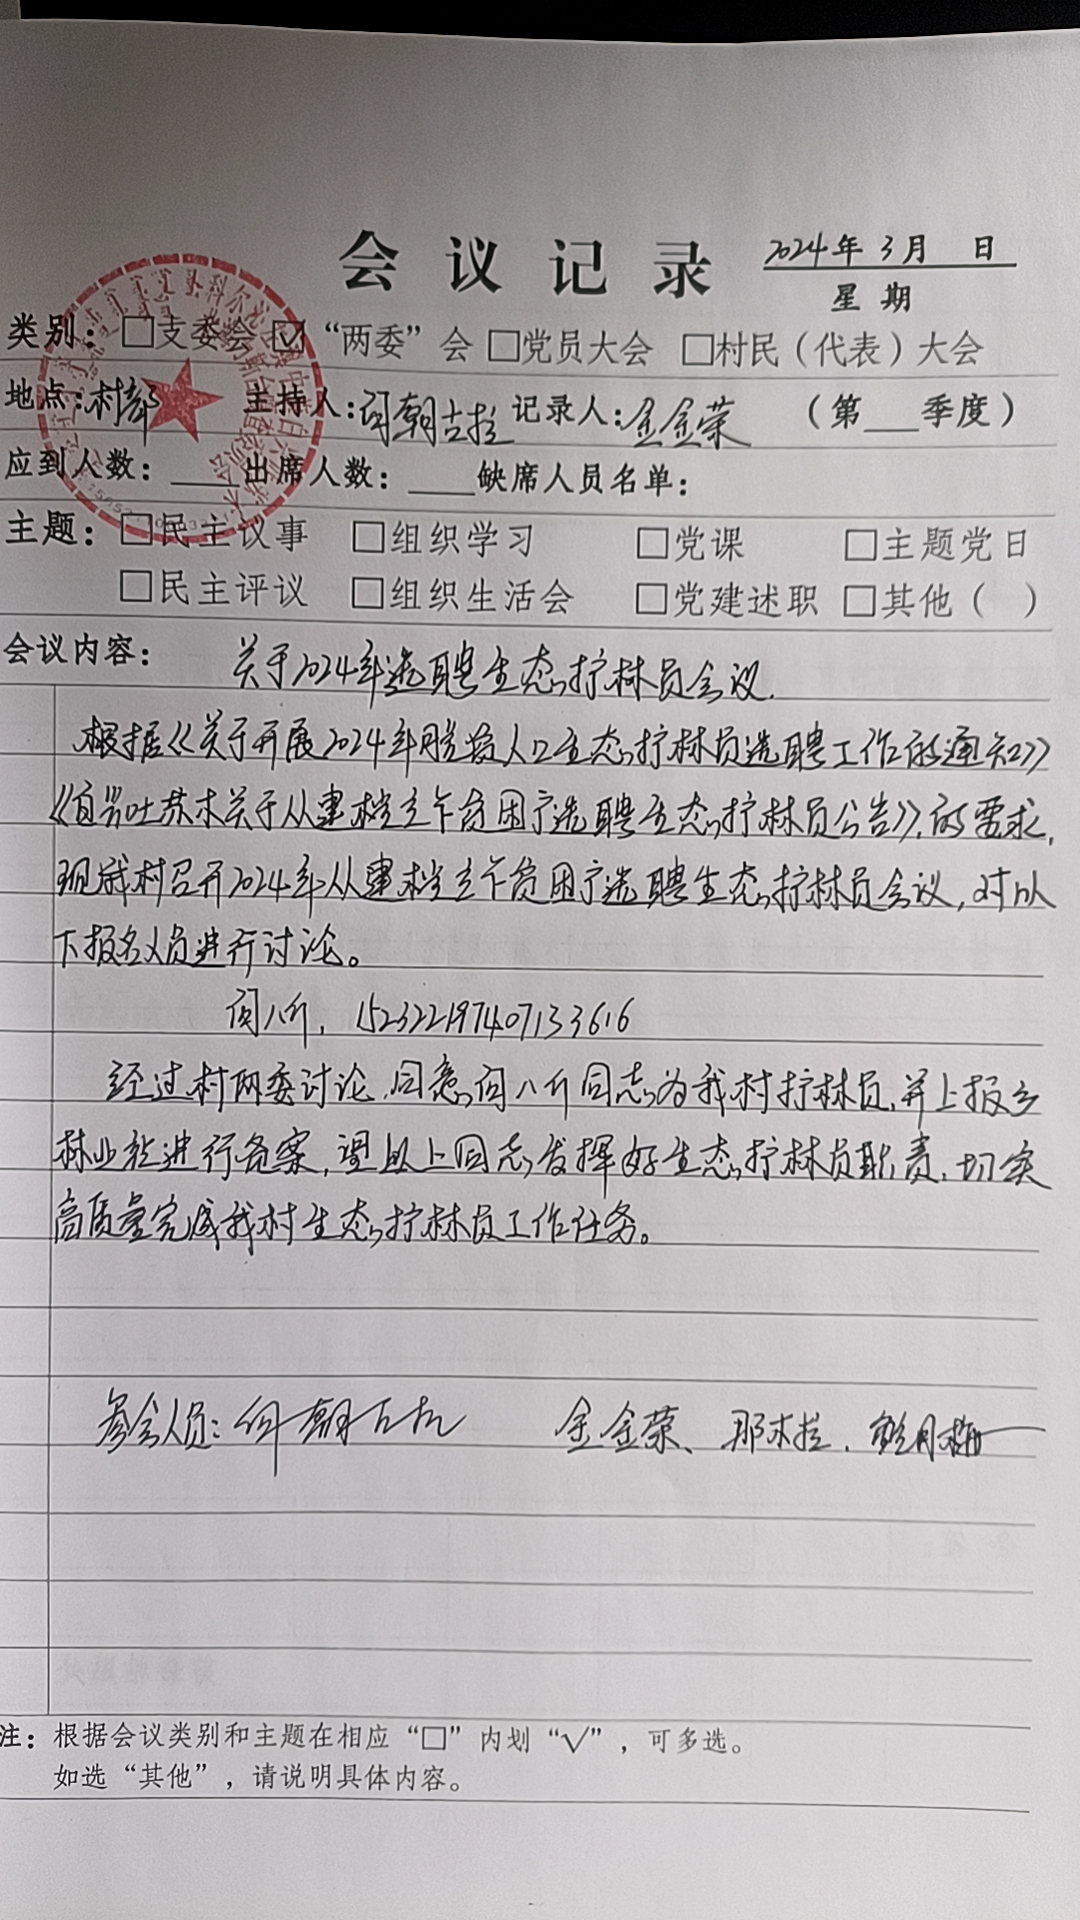 会议记录
2024年 3月 日
星期
类别：□支委会 ☑“两委”会 □党员大会 □村民（代表）大会
地点：村部 主持人：朝古拉 记录人：金金荣 （第___季度）
应到人数：___ 出席人数：___ 缺席人员名单：
主题：□民主议事 □组织学习 □党课 □主题党日
□民主评议 □组织生活会 □党建述职 □其他（ ）
会议内容： 关于2024年选聘生态护林员会议.
根据《关于开展2024年脱贫人口生态护林员选聘工作的通知》
《白兴吐苏木关于从建档立卡贫困户选聘生态护林员公告》,的要求,
现我村召开2024年从建档立卡贫困户选聘生态护林员会议,对以
下报名人员进行讨论。
八斤, 152322197407133616
经过村两委讨论,同意八斤同志为我村护林员,并上报乡
林业站进行备案,望以上同志发挥好生态护林员职责,切实
高质量完成我村生态护林员工作任务。
参会人员：朝古拉 金金荣、那木拉.月梅
注：根据会议类别和主题在相应“□”内划“√”，可多选。
如选“其他”，请说明具体内容。